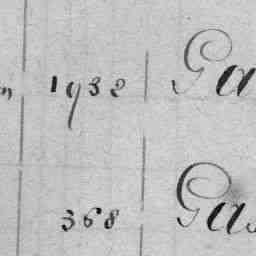 n 1932 Ga
368 Gas